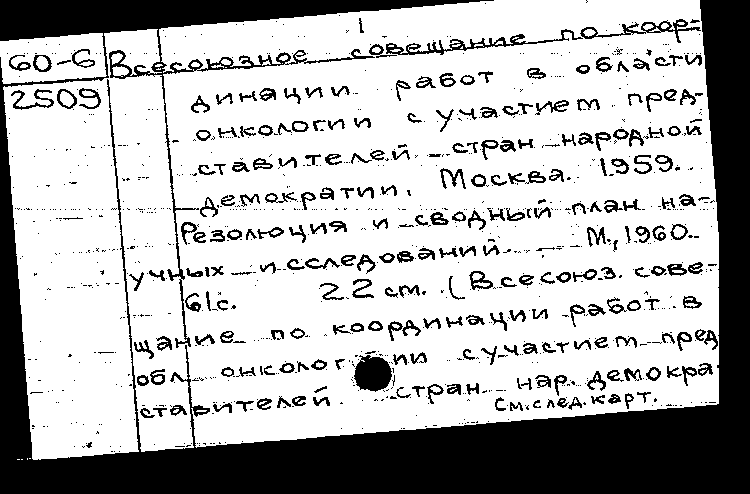 1
60-6 Всесоюзное совещание по коор-
2509 динации работ в области
онкологии с участием пред-
ставителей стран народной
демократии. Москва. 1959.
Резолюция и сводный план на-
учных исследований. М., 1960.
61с. 22 см. (Всесоюз. сове-
щание по координации работ в
обл. онкологии с участием пред
ставителей стран нар. демокра-
См. след. карт.